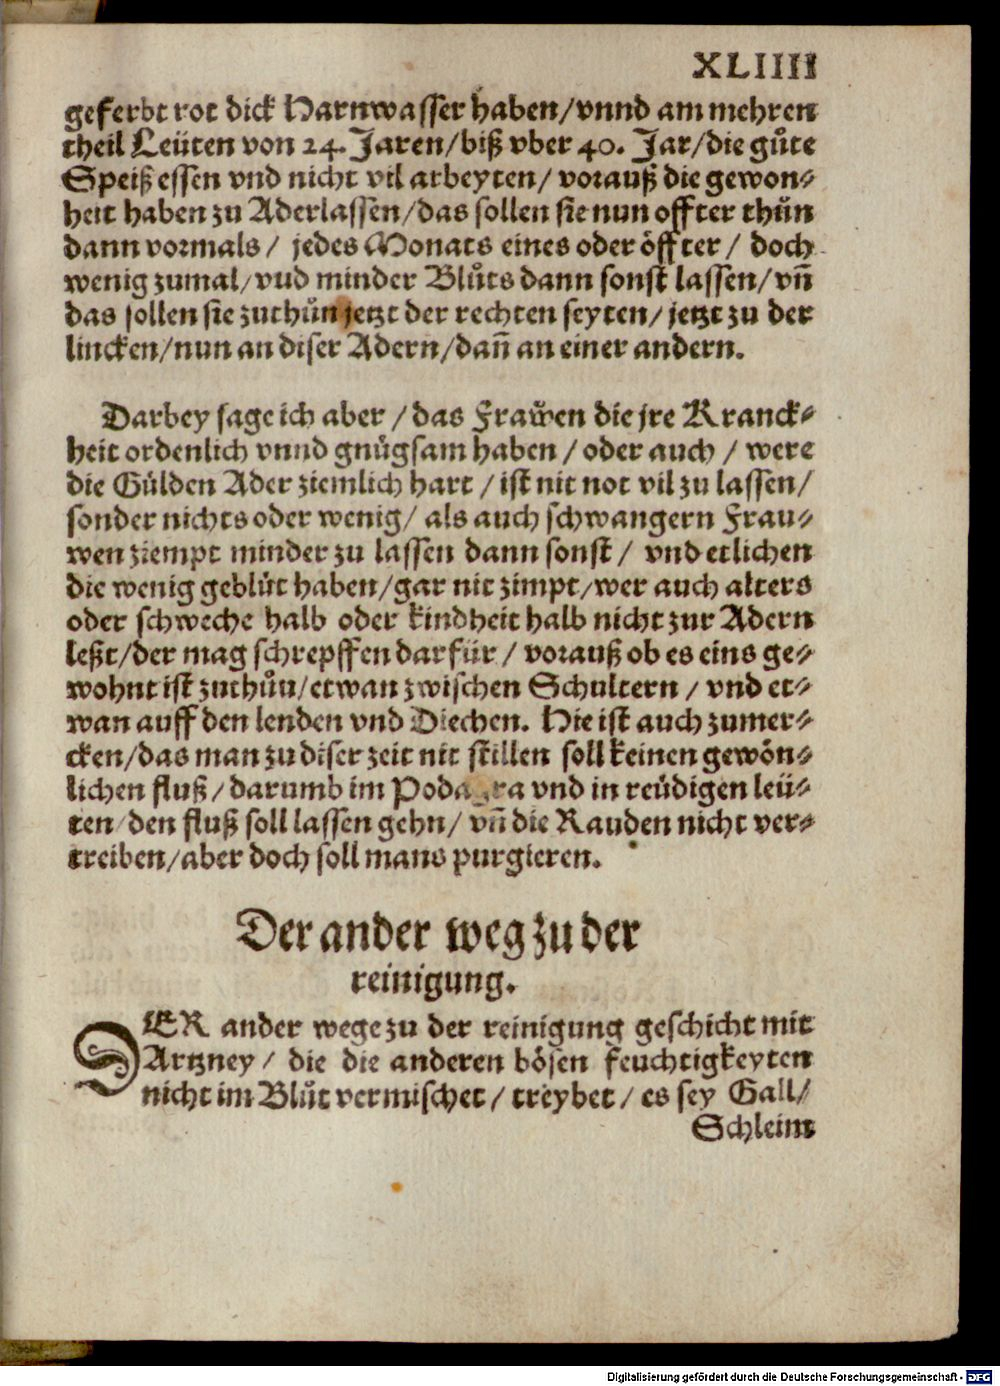 XLIIII
geferbt rot dick Harnwasser haben/vnnd am mehren
theil Leüten von 24. Jaren/biß vber 40. Jar/die gůte
Speiß essen vnd nicht vil arbeyten/ vorauß die gewon⸗
heit haben zu Aderlassen/das sollen sie nun offter thůn
dann vormals/ jedes Monats eines oder öffter/ doch
wenig zumal/vud minder Blůts dann sonst lassen/vñ
das sollen sie zuthůn jetzt der rechten seyten/jetzt zu der
lincken/nun an diser Adern/dañ an einer andern.
Darbey sage ich aber/das Frawen die jre Kranck⸗
heit ordenlich vnnd gnůgsam haben/oder auch/were
die Gülden Ader ziemlich hart/ist nit not vil zu lassen/
sonder nichts oder wenig/ als auch schwangern Frau⸗
wen ziempt minder zu lassen dann sonst/ vnd etlichen
die wenig geblüt haben/gar nit zimpt/wer auch alters
oder schweche halb oder kindheit halb nicht zur Adern
leßt/der mag schrepffen darfür/vorauß ob es eins ge⸗
wohnt ist zuthůn/etwan zwischen Schultern/vnd et⸗
wan auff den lenden vnd Diechen. Hie ist auch zumer⸗
cken/das man zu diser zeit nit stillen soll keinen gewön⸗
lichen fluß/darumb im Podagra vnd in reüdigen leü⸗
ten/den fluß soll lassen gehn/vñ die Rauden nicht ver⸗
treiben/aber doch soll mans purgieren.
Der ander weg zu der
reinigung.
DER ander wege zu der reinigung geschicht mit
Artzney/ die die anderen bösen feuchtigkeyten
nicht im Blůt vermischet/treybet/es sey Gall/
Schleim
Digitalisierung gefördert durch die Deutsche Forschungsgemeinschaft - DFG